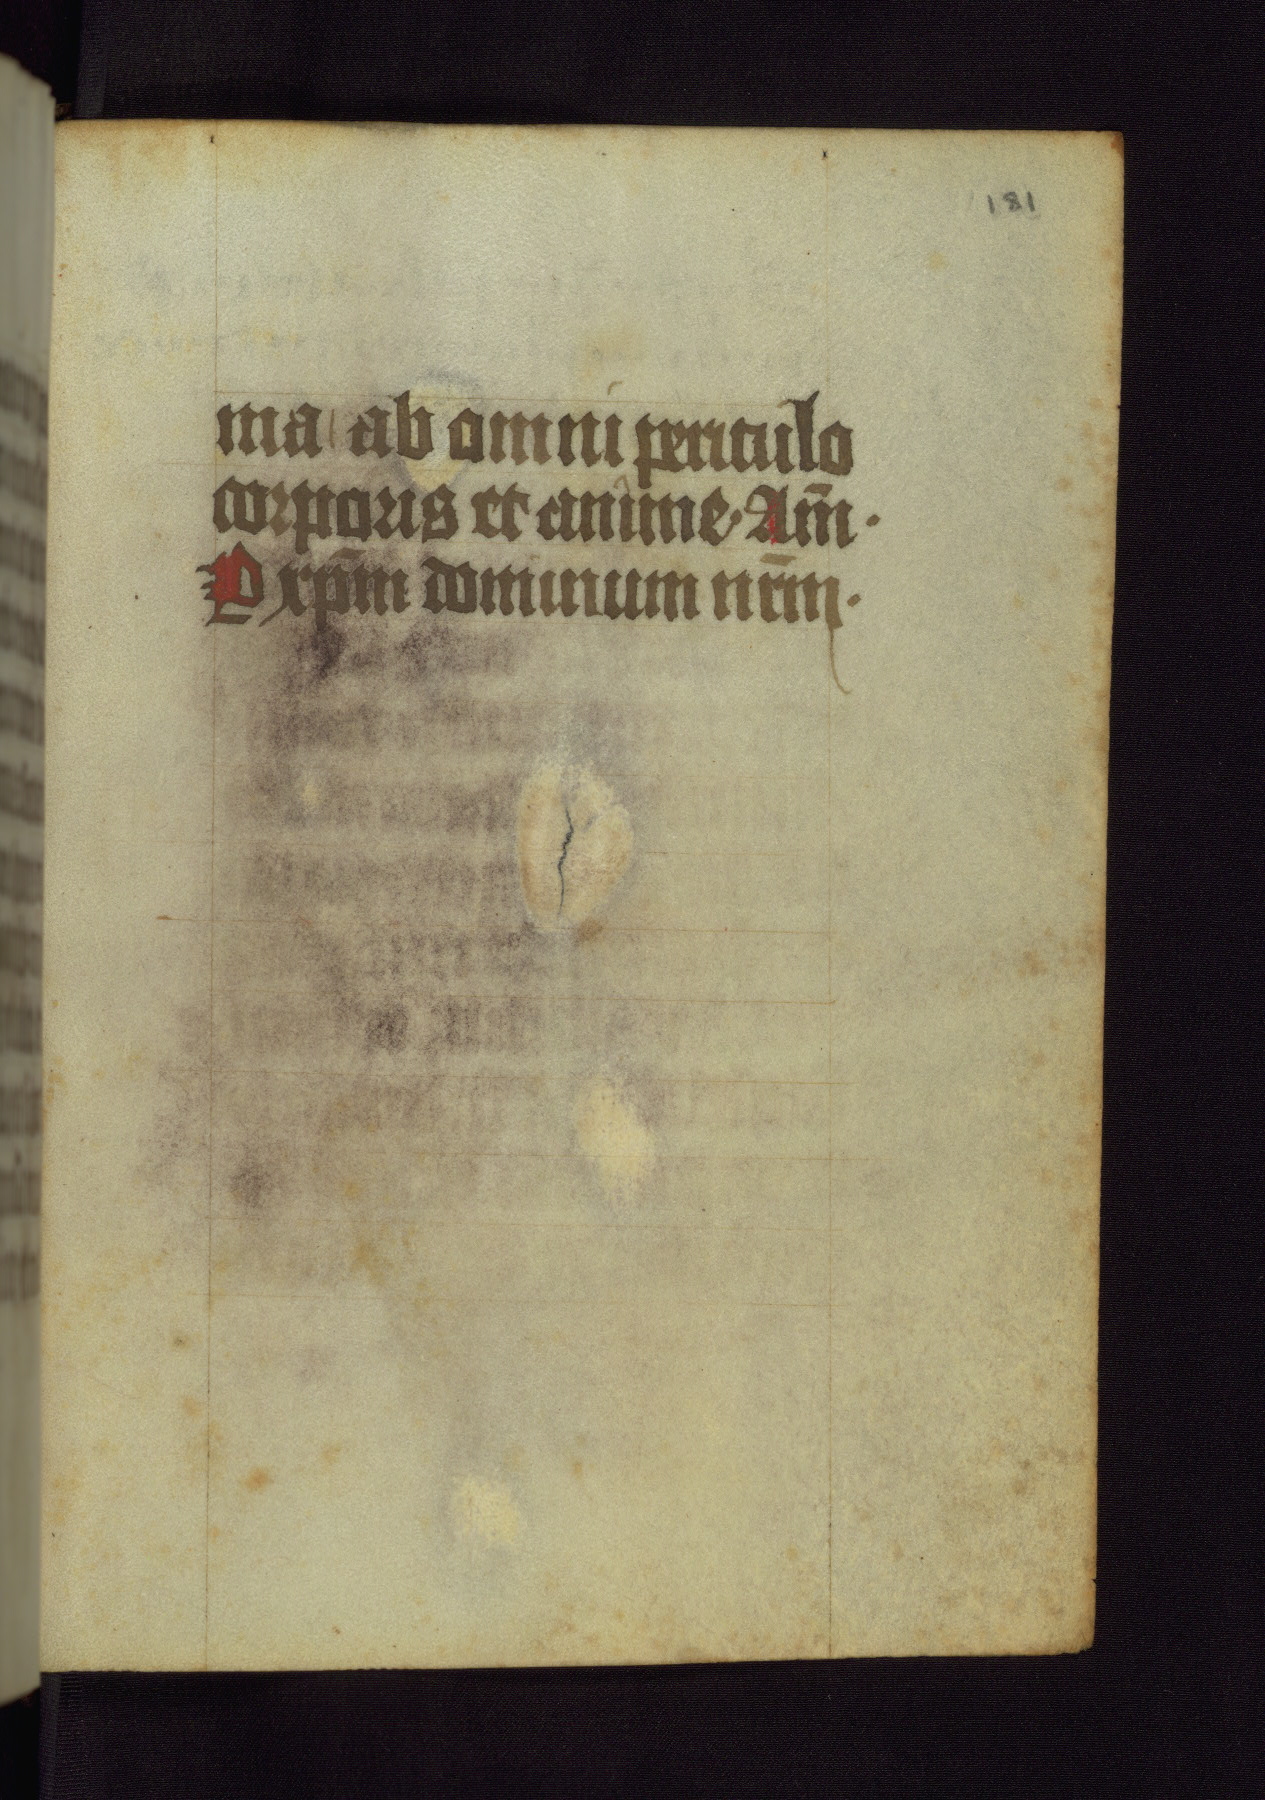 181
ma ab omni periculo
corporis et anime. Am̄.
P xp̄m dominum nr̄m.